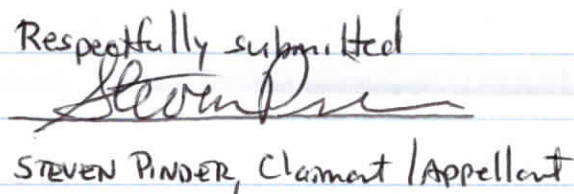 Respectfully submitted
Steven Pinder
STEVEN PINDER, Claimant / Appellant